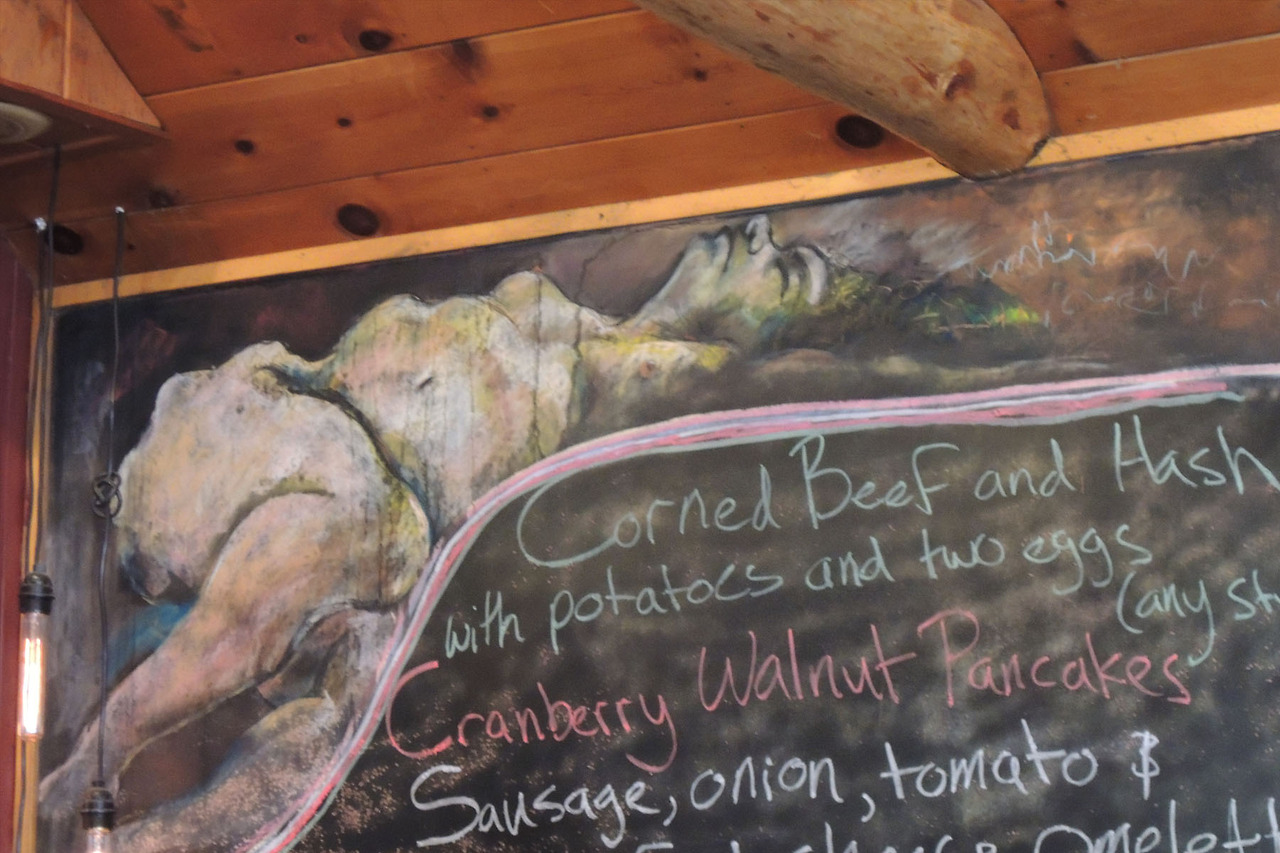 Corned Beef and Hash
with potatoes and two eggs
(any
Cranberry Walnut Pancakes
Sausage, onion, tomato &